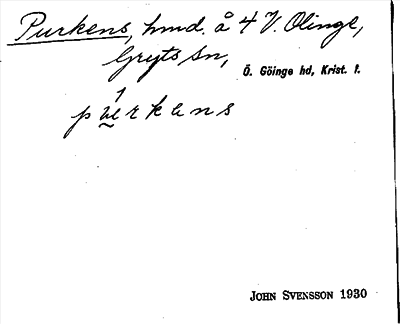 Purkens, hmd. å 4 V. Olinge,
Gryts sn,
Ö. Göinge hd, Krist. l.
JOHN SVENSSON 1930